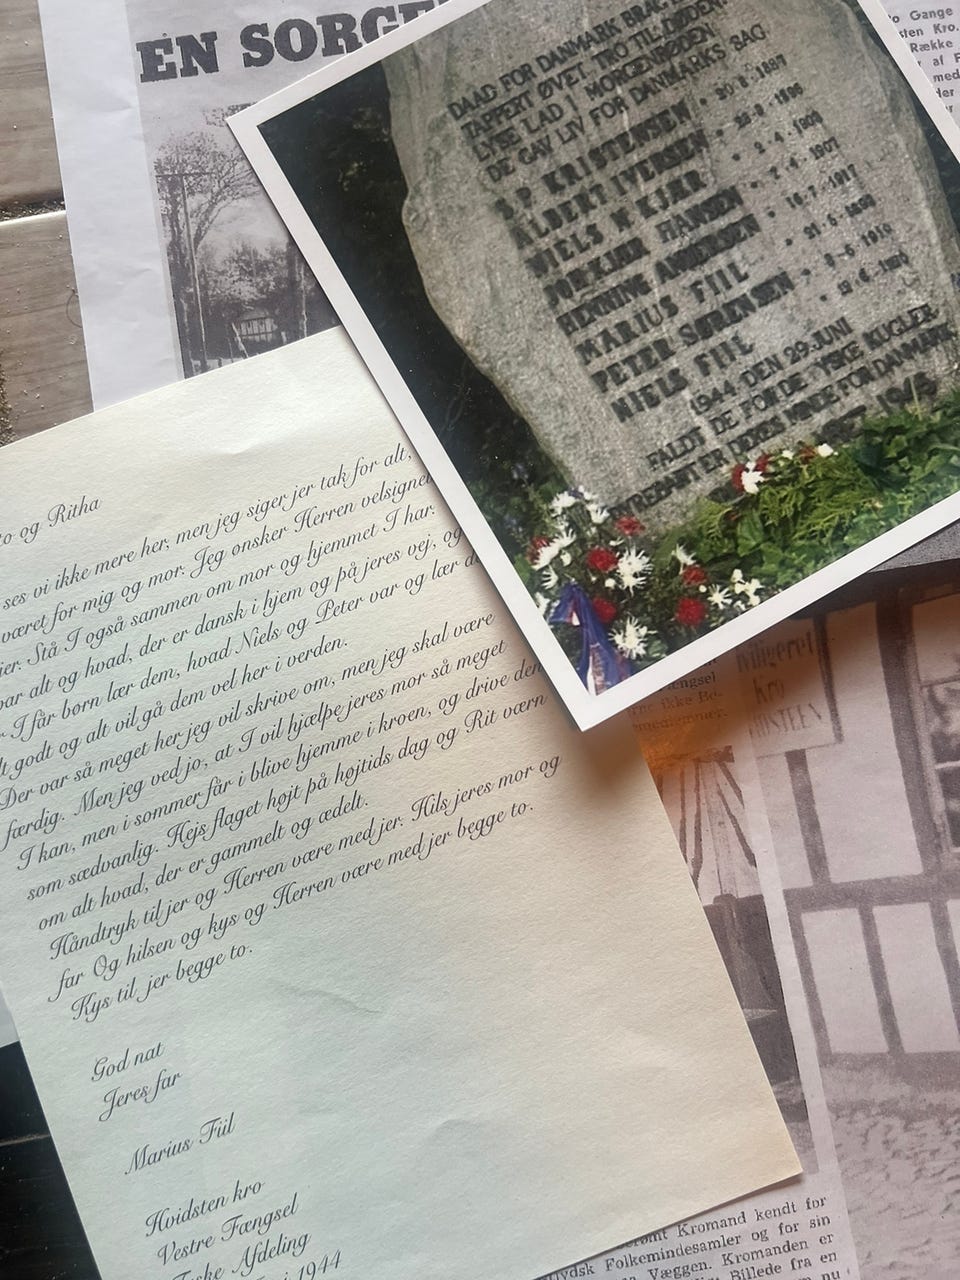 EN SORGE
Gange
sten Kro.
Række
af F
med
Her
DAAD FOR DANMARK BRAGT
TAPPERT ØVET, TRO TIL DØDEN.
LYSE LAD I MORGENRØDEN
DE GAV LIV FOR DANMARKS SAG
P KRISTENSEN
ALBERT IVERSEN
NIELS N KJÆR
HANSEN
HENNING ANDERSEN
MARIUS FIIL
PETER SØRENSEN
NIELS FIIL
1944 DEN 29. JUNI
FALDT DE FOR DE TYSKE KUGLER
og Ritha
ses vi ikke mere her, men jeg siger jer tak for alt,
været for mig og mor. Jeg ønsker Herren velsigne
jer. Stå I også sammen om mor og hjemmet I har.
var alt og hvad, der er dansk i hjem og på jeres vej, og
I får børn lær dem, hvad Niels og Peter var og lær
godt og alt vil gå dem vel her i verden.
Der var så meget her jeg vil skrive om, men jeg skal være
færdig. Men jeg ved jo, at I vil hjælpe jeres mor så meget
I kan, men i sommer får i blive hjemme i kroen, og drive den
som sædvanlig. Hejs flaget højt på højtids dag og Rit værn
om alt hvad, der er gammelt og ædelt.
Håndtryk til jer og Herren være med jer. Hils jeres mor og
far Og hilsen og kys og Herren være med jer begge to.
Kys til jer begge to.
God nat
Jeres far
Marius Fiil
Hvidsten kro
Vestre Fængsel
Tyske Afdeling
1944
Kro
HVIDSTEEN
Kromand kendt for
Folkemindesamler og for sin
Væggen. Kromanden er
Billede fra en
nu